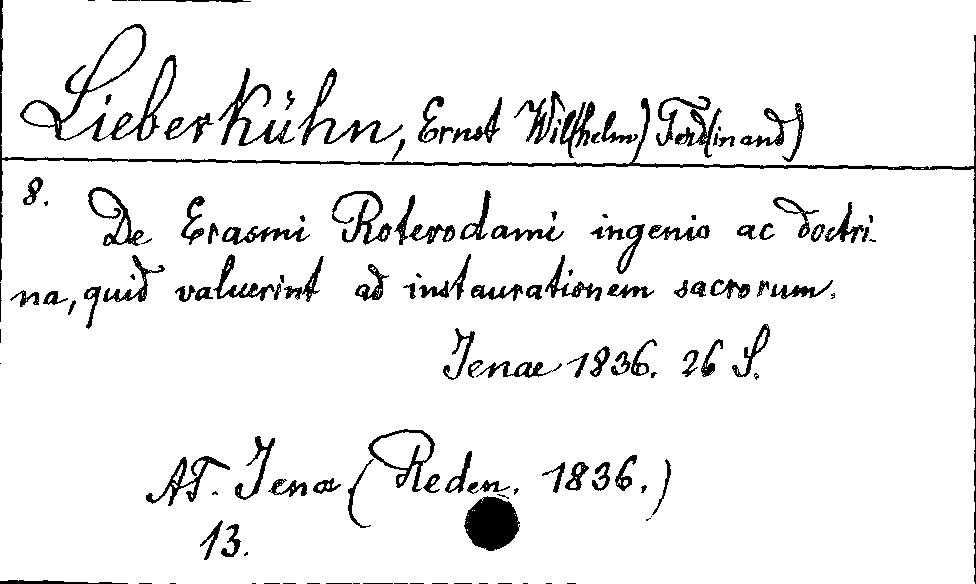 Lieberkühn, Ernst Wil(helm) Ferd(inand)
8.
De Erasmi Roterodami ingenio ac doctri-
na, quid valuerint ad instaurationem sacrorum.
Jenae 1836. 26 S.
AT. Jena (Reden. 1836.)
13.